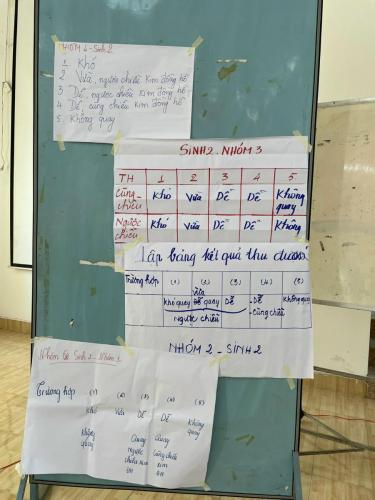 NHÓM 4 - Sinh 2
1 Khó
2 Vừa, ngược chiều kim đồng hồ
3 Dễ, ngược chiều kim đồng hồ
4 Dễ, cùng chiều kim đồng hồ
5. Không quay
SINH 2 - NHÓM 3
TH 1 2 3 4 5
Cùng chiều Khó Vừa Dễ Dễ Không quay
Ngược chiều Khó Vừa Dễ Dễ Không
Lập bảng kết quả thu được
Trường hợp (1) (2) (3) (4) (5)
Vừa
khó quay quay Dễ - Dễ không quay
Ngược chiều - Cùng chiều
NHÓM 2 - SINH 2
Nhóm Sinh 2 - Nhóm 1
Trường hợp (1) (2) (3) (4) (5)
Khó Vừa Dễ Dễ Không quay
Không quay Quay Ngược chiều kim Quay Cùng chiều kim